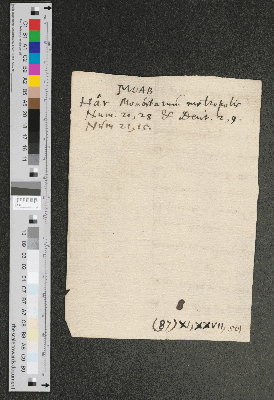 MOAB
Hâr Moabitarum metropolis
Num. 21, 28 & Deut. 2, 9.
Num 21, 15.
(87) XI, XXVII,